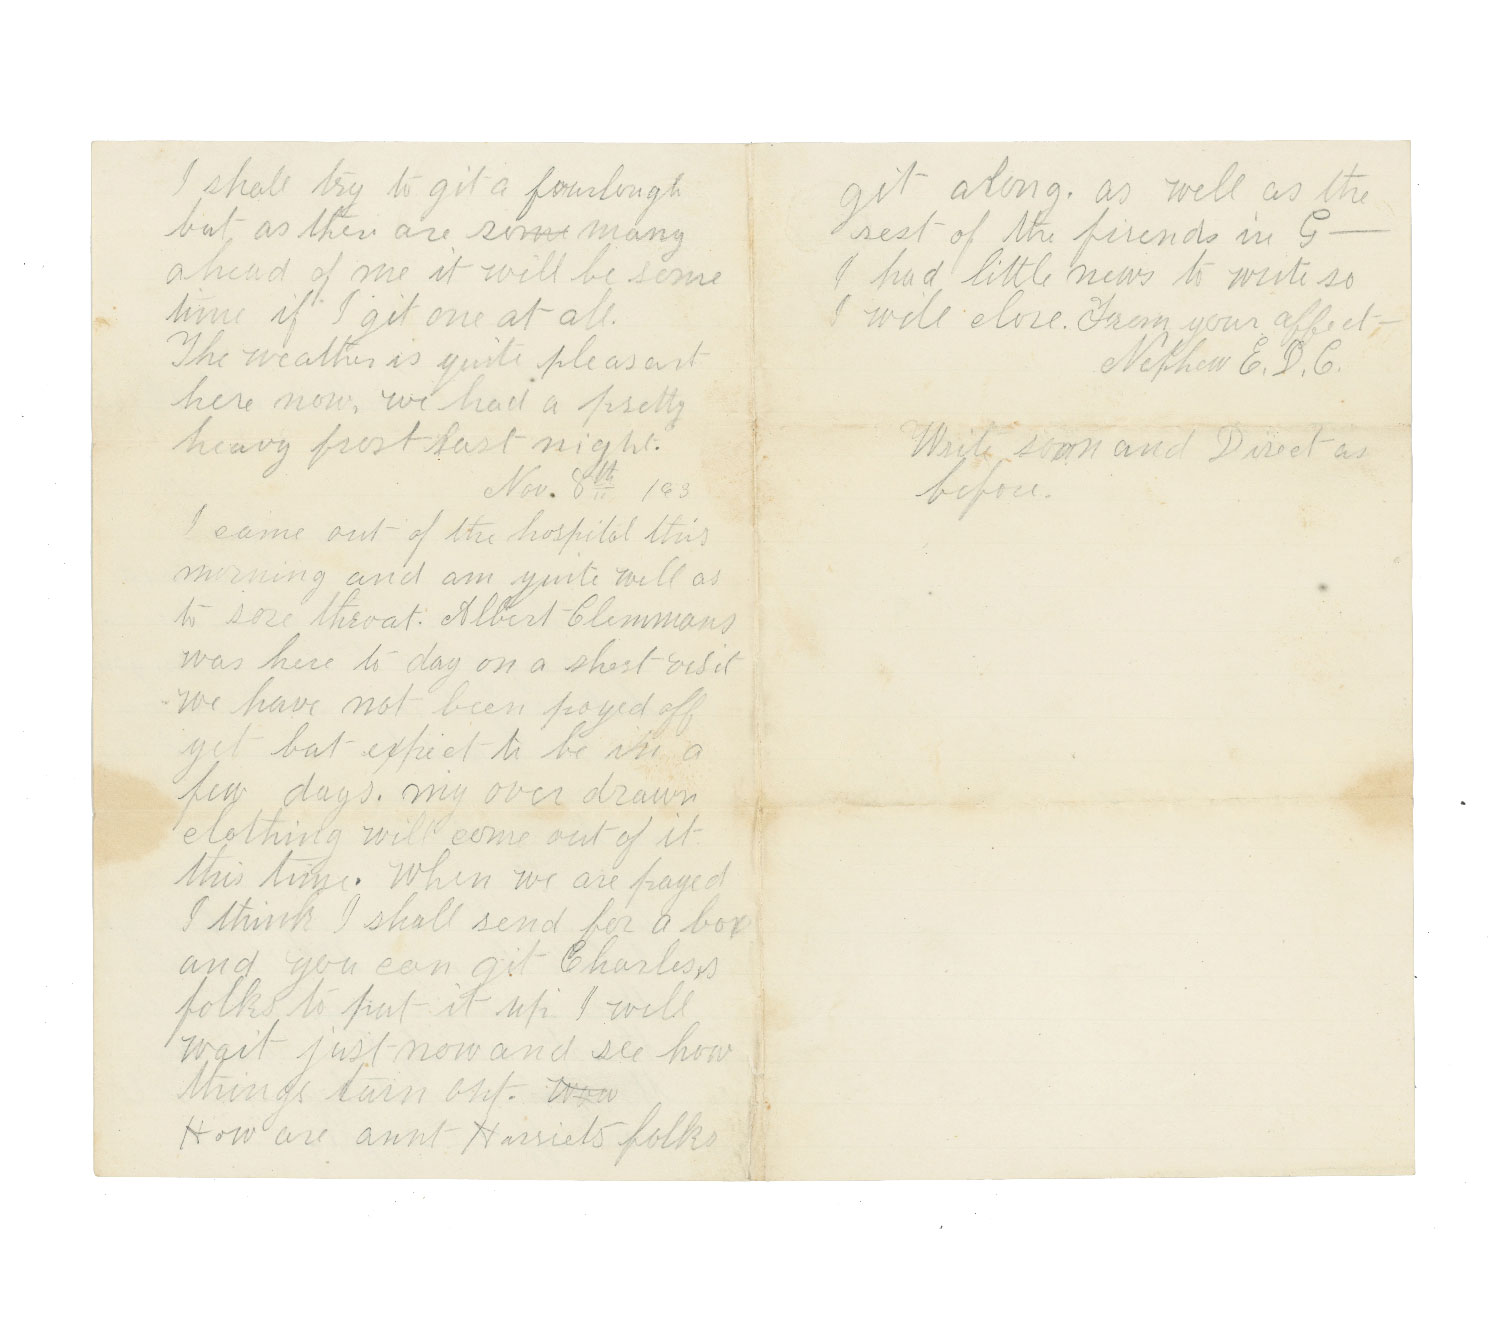 I shall try to git a fourlough
but as ther are some many
ahead of me it will be some
time if I git one at all.
The weather is quite pleasant
here now, we had a pretty
heavy frost last night.
Nov. 8th 183
I came out of the hospital this
morning and am quite well as
to sore throat. Albert Clemmans
was here to day on a short visit
we have not been payed off
yet but expect to be in a
few days. my over drawn
clothing will come out of it
this time. When we are payed
I think I shall send for a box
and you can git Charles,s
folks to put it up. I will
wait just now and see how
things turn out.
How are aunt Harriets folks
git along. as well as the
rest of the firends in G—
I had little news to write so
I will close. From your affect—
Nephew E. D. C.
Write soon and Direct as
before.